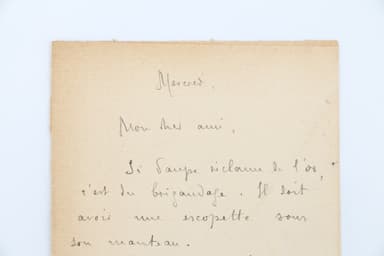 Mercredi.
Mon cher ami,
Si Paupe réclame de l'or,
c'est du brigandage. Il doit
avoir une escopette sous
son manteau.